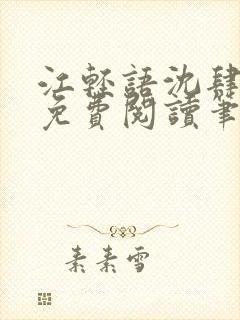 江輕語沈肆
免費閱讀筆
素素雪